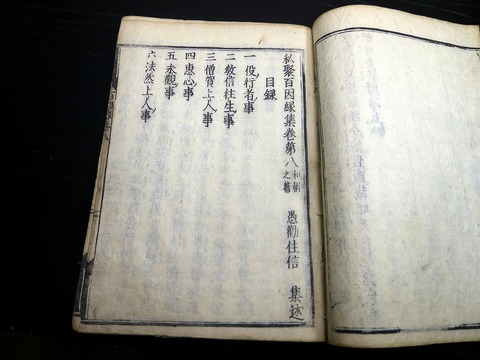 私聚百因縁集卷第八 和朝之篇 愚勸住信 集述
目録
一 伇行者事
二 教信往生事
三 僧賀上人事
四 惠心事
五 永觀事
六 法然上人事